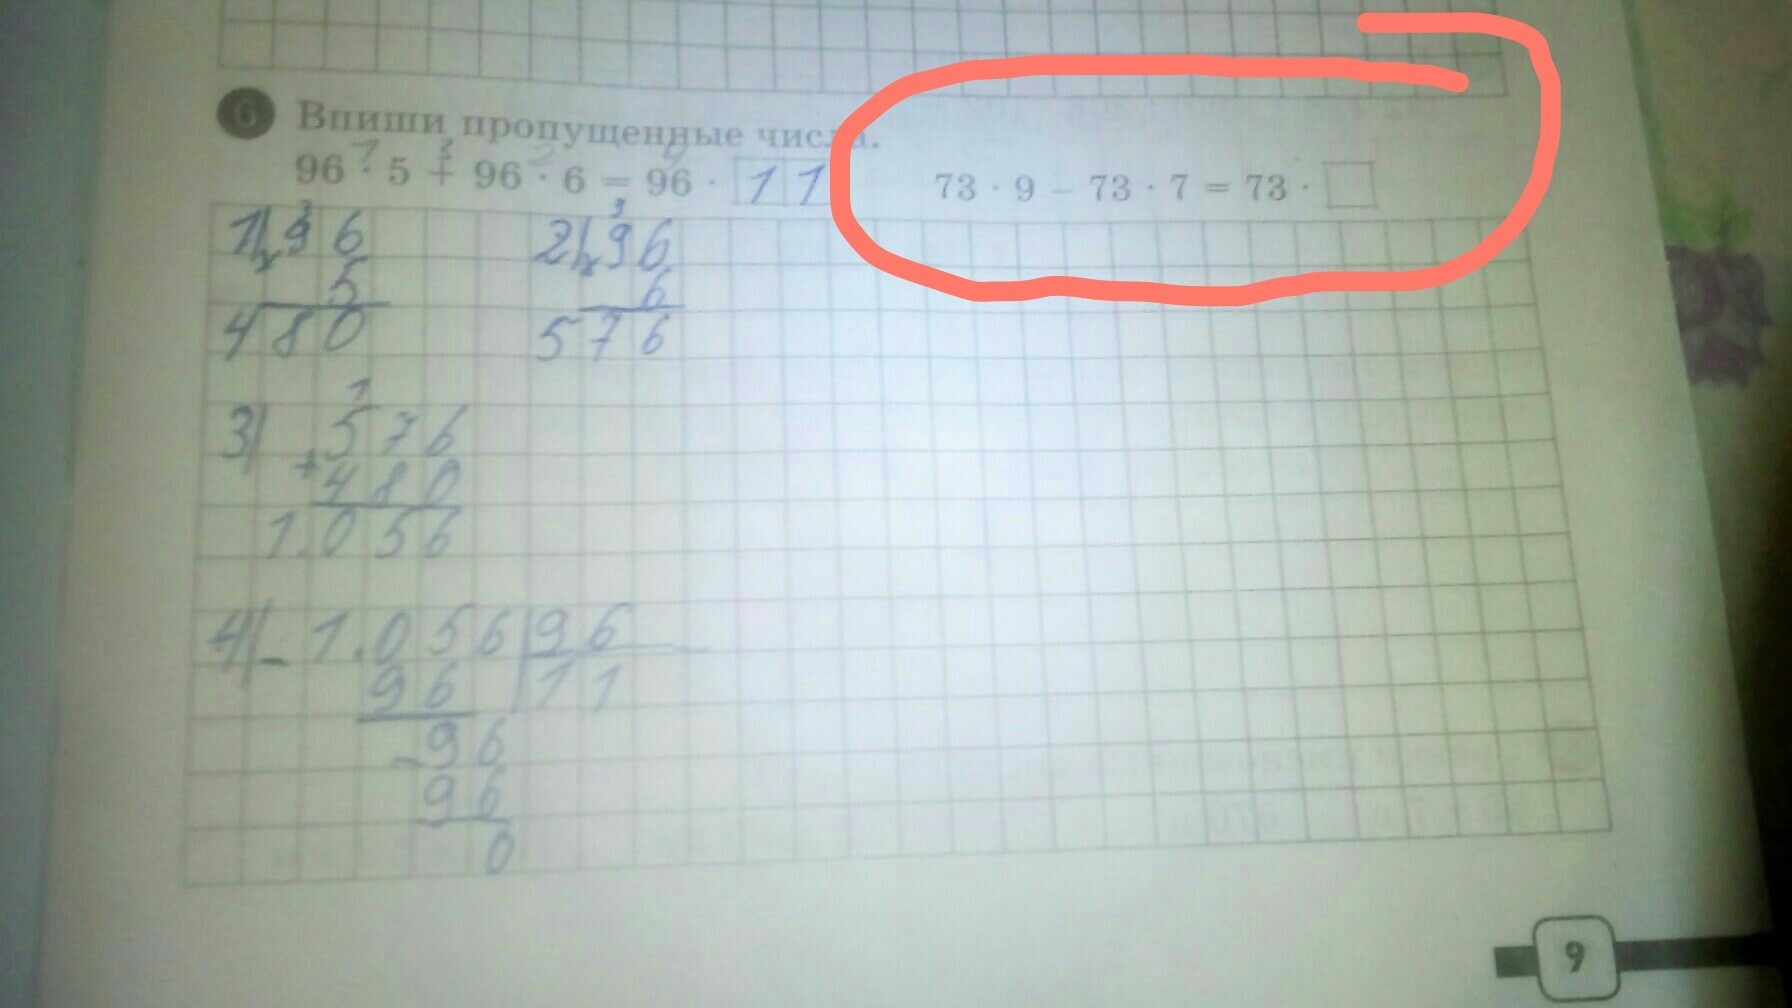 6 Впиши пропущенные числа.
96 · 5 + 96 · 6 = 96 · 11 73 · 9 − 73 · 7 = 73 ·
1) 96 2) 96
× 5 × 6
480 576
3) 576
+ 480
1.056
4) − 1.056 96
96 11
− 96
96
0
9